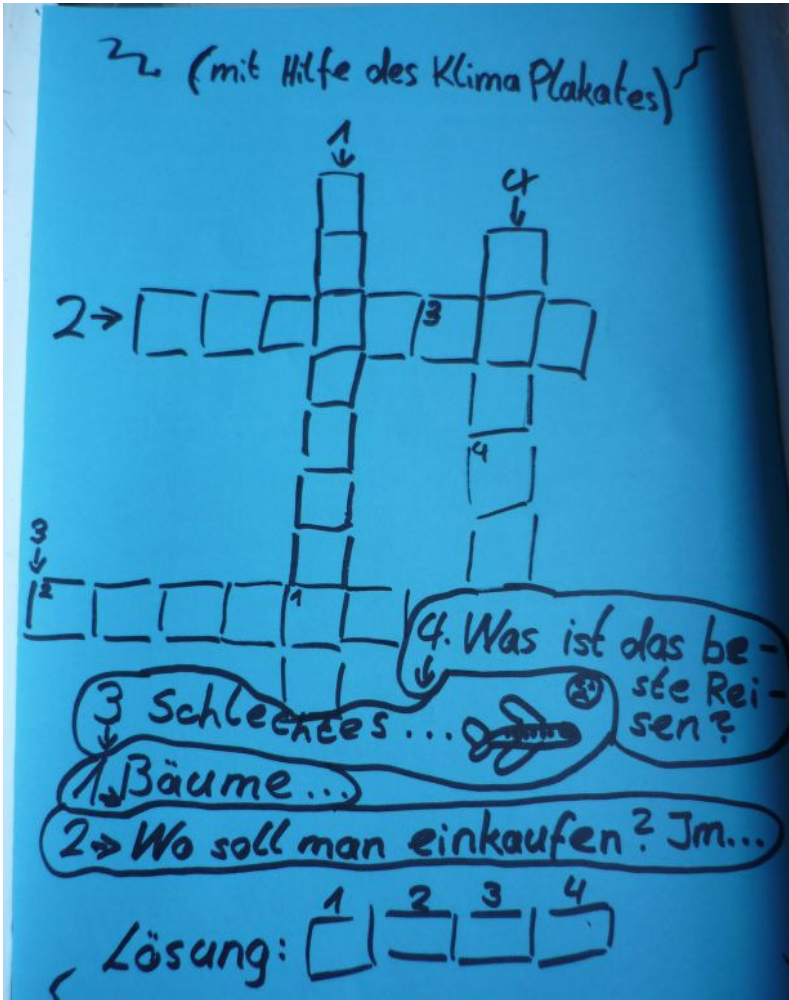 (mit Hilfe des Klima Plakates)
1
4
2→
3
4
3
2
1
4. Was ist das be-
ste Rei-
sen?
3 Schlechtes...
1. Bäume...
2→ Wo soll man einkaufen? Im...
1 2 3 4
Lösung: